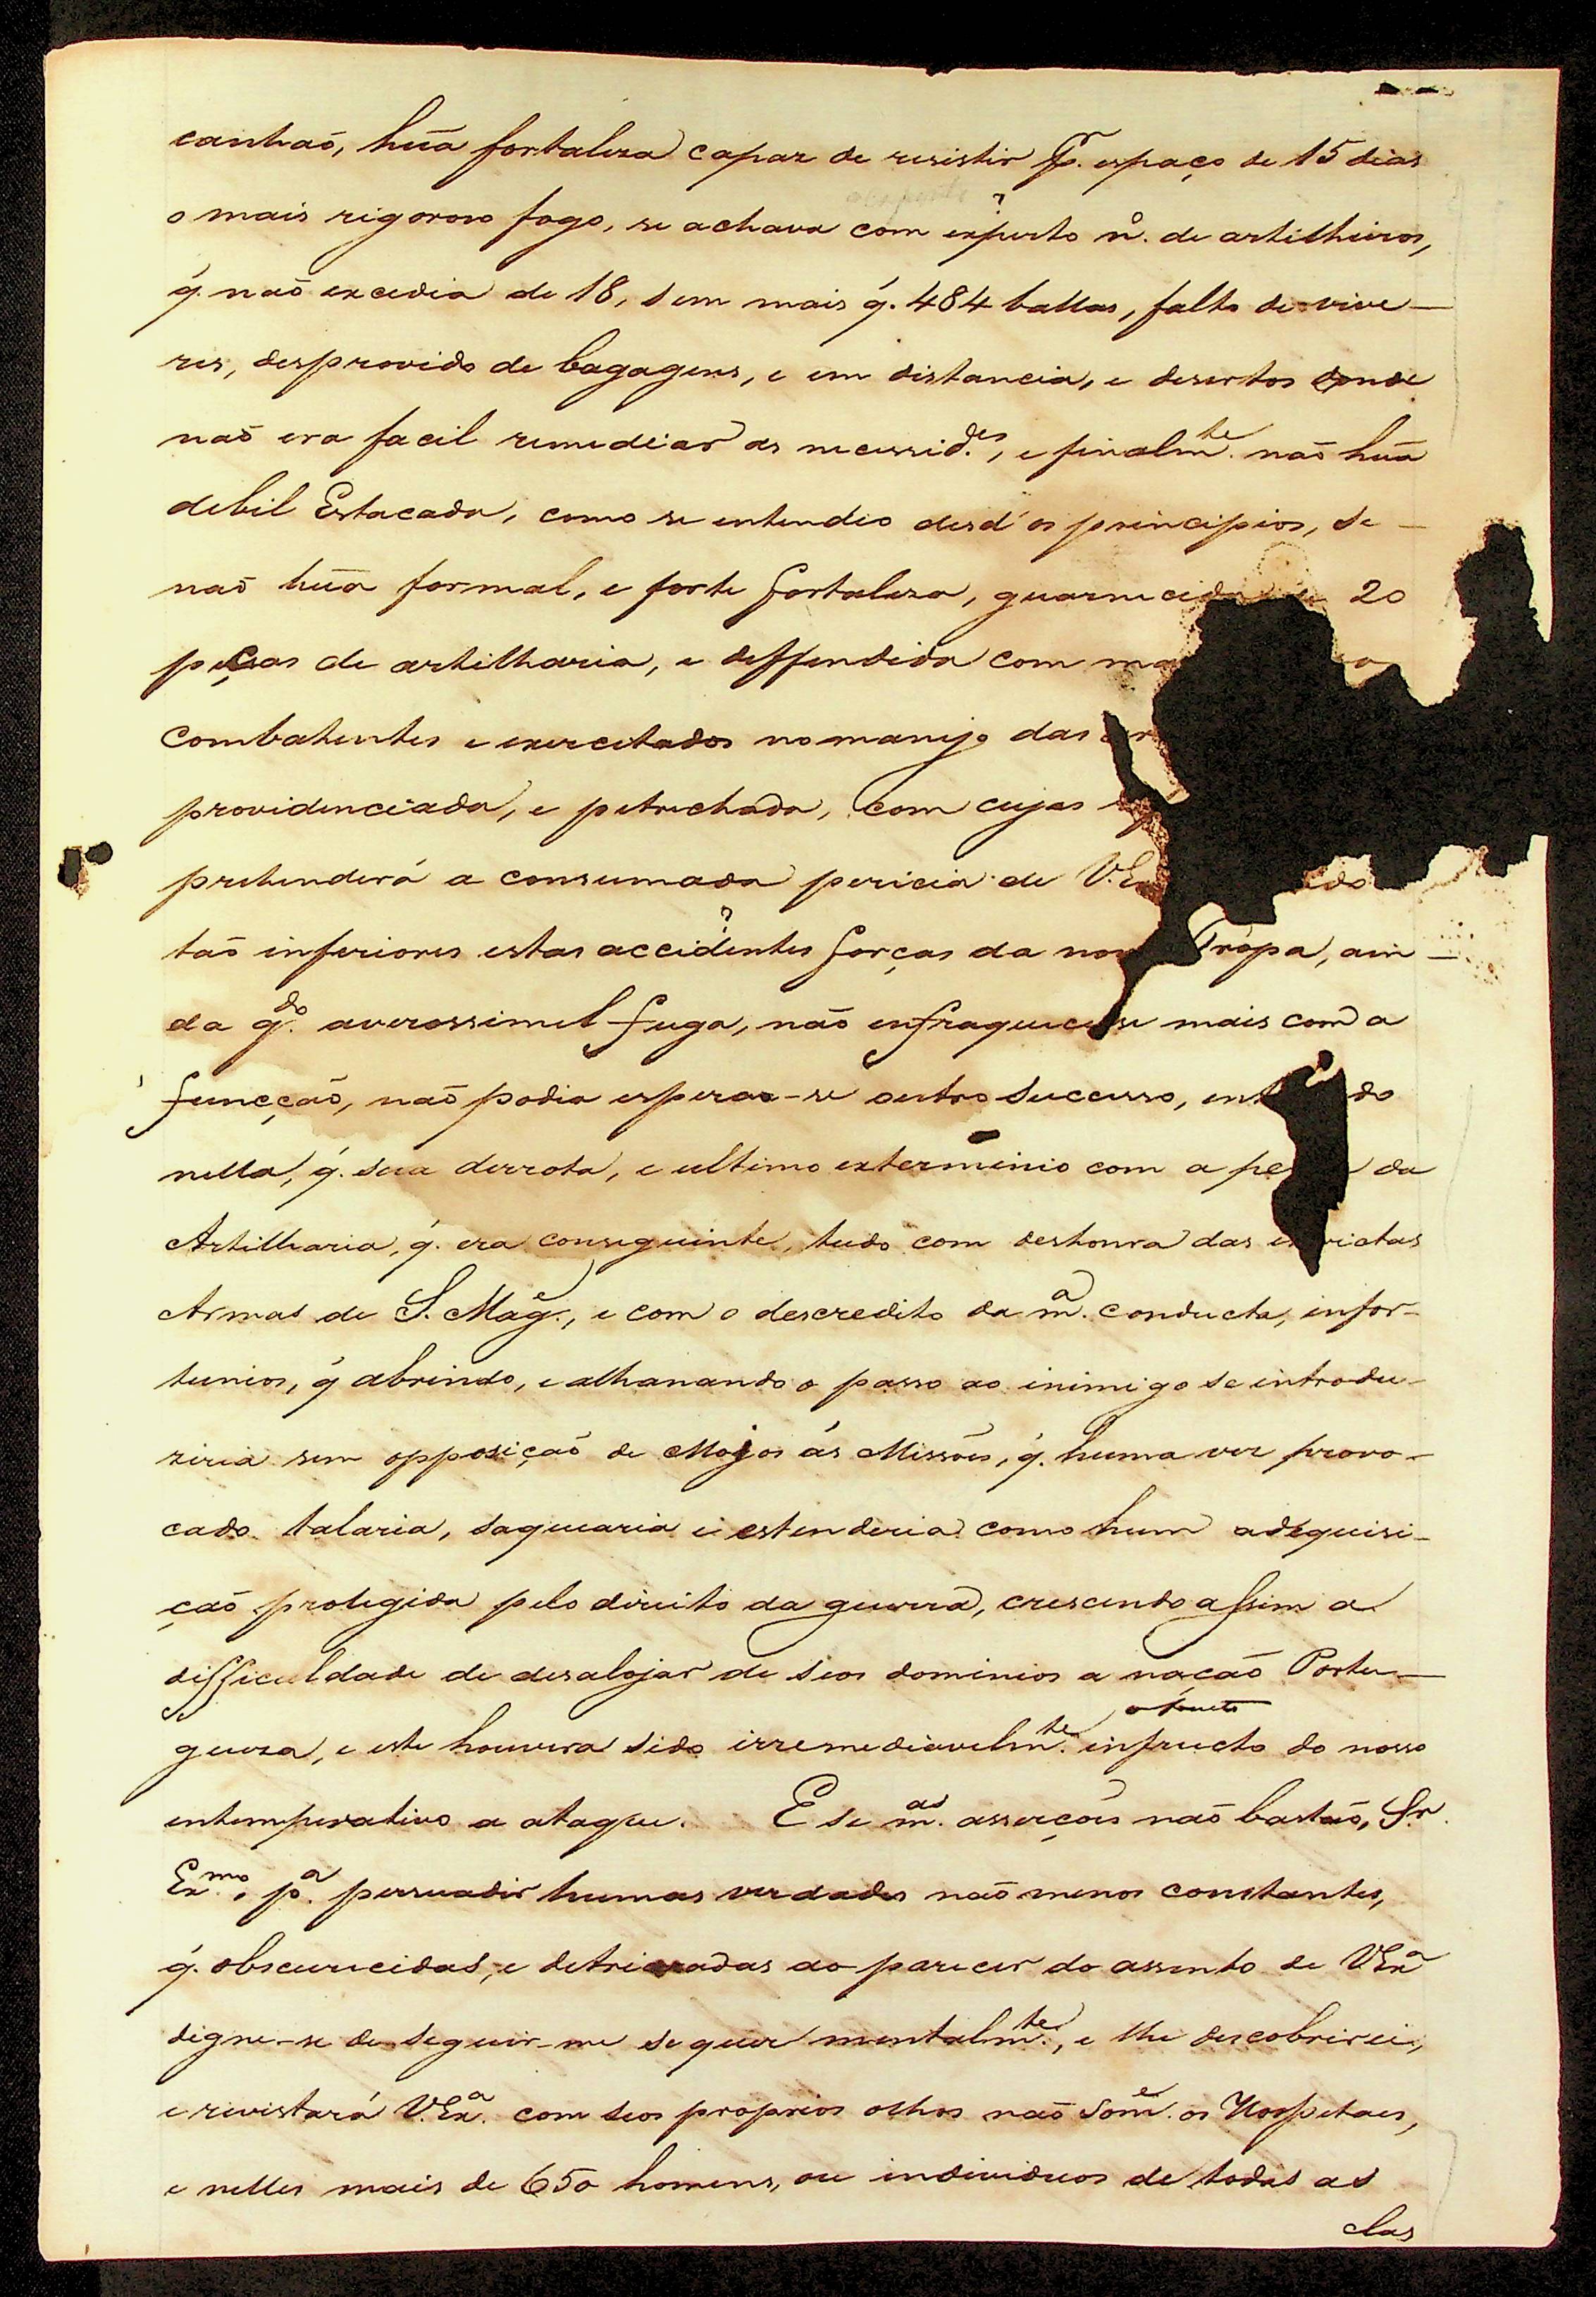 canhaõ, huã fortaleza capaz de resistir pr. espaço de 15 dias
o mais rigoroso fogo, se achava com experto nº. de artilheiros,
q́. naõ excedia de 18, sem mais q́. 484 ballas, falto de vive-
res, desprovido de bagagens, e em distancia, e desertos donde
naõ era facil remediar as necessid.es, e finalm.te naõ huã
debil Estacada, como se entendeo desd'os principios, se-
naõ huã formal, e forte fortaleza, guarnecida 20
peças de artilharia, e deffendida com
combatentes e exercitados no manejo das
providenciada, e petrechada, com cujas
pretenderá a consumada pericia de V.Ex
taõ inferiores estas accidentes forças da Tropa, ain-
da q.do averossimel fuga, não enfraquecese mais com a
funcçaõ, naõ podia esperar-se outro successo,
nella, q́. sua derrota, e ultimo exterminio com a da
Artilharia, q́. era conseguinte, tudo com deshonra das
Armas de S. Mag.e, e com o descredito da m.a conducta, infor-
tunios, q́ abrindo, e alhanando o passo ao inimigo se introdu-
ziria sem opposiçaõ de Mojos ás Missões, q́. huma vez provo-
cado talaria, saquearia e estenderia como hum adequisi-
çaõ protegida pelo direito da guerra, crescendo assim a
difficuldade de desalojar de seos dominios a naçaõ Portu-
gueza, e este houvera sido irremediavelm.te infructo do nosso
entemperativo a ataque. E se m.as asserçoẽs naõ bastaõ, Sr.
Ex.mo, p.a persuadir humas verdades naõ menos constantes,
q́. obscurecidas, e detrioradas ao parecer do assento de VExa
digne-se de seguir-me sequer mentalm.te, e lhe descobrirei,
e revistará V.Ex.a com seos proprios olhos naõ som.e os Hospitaes,
e nelles mais de 650 homens, ou individuos de todas as
clas